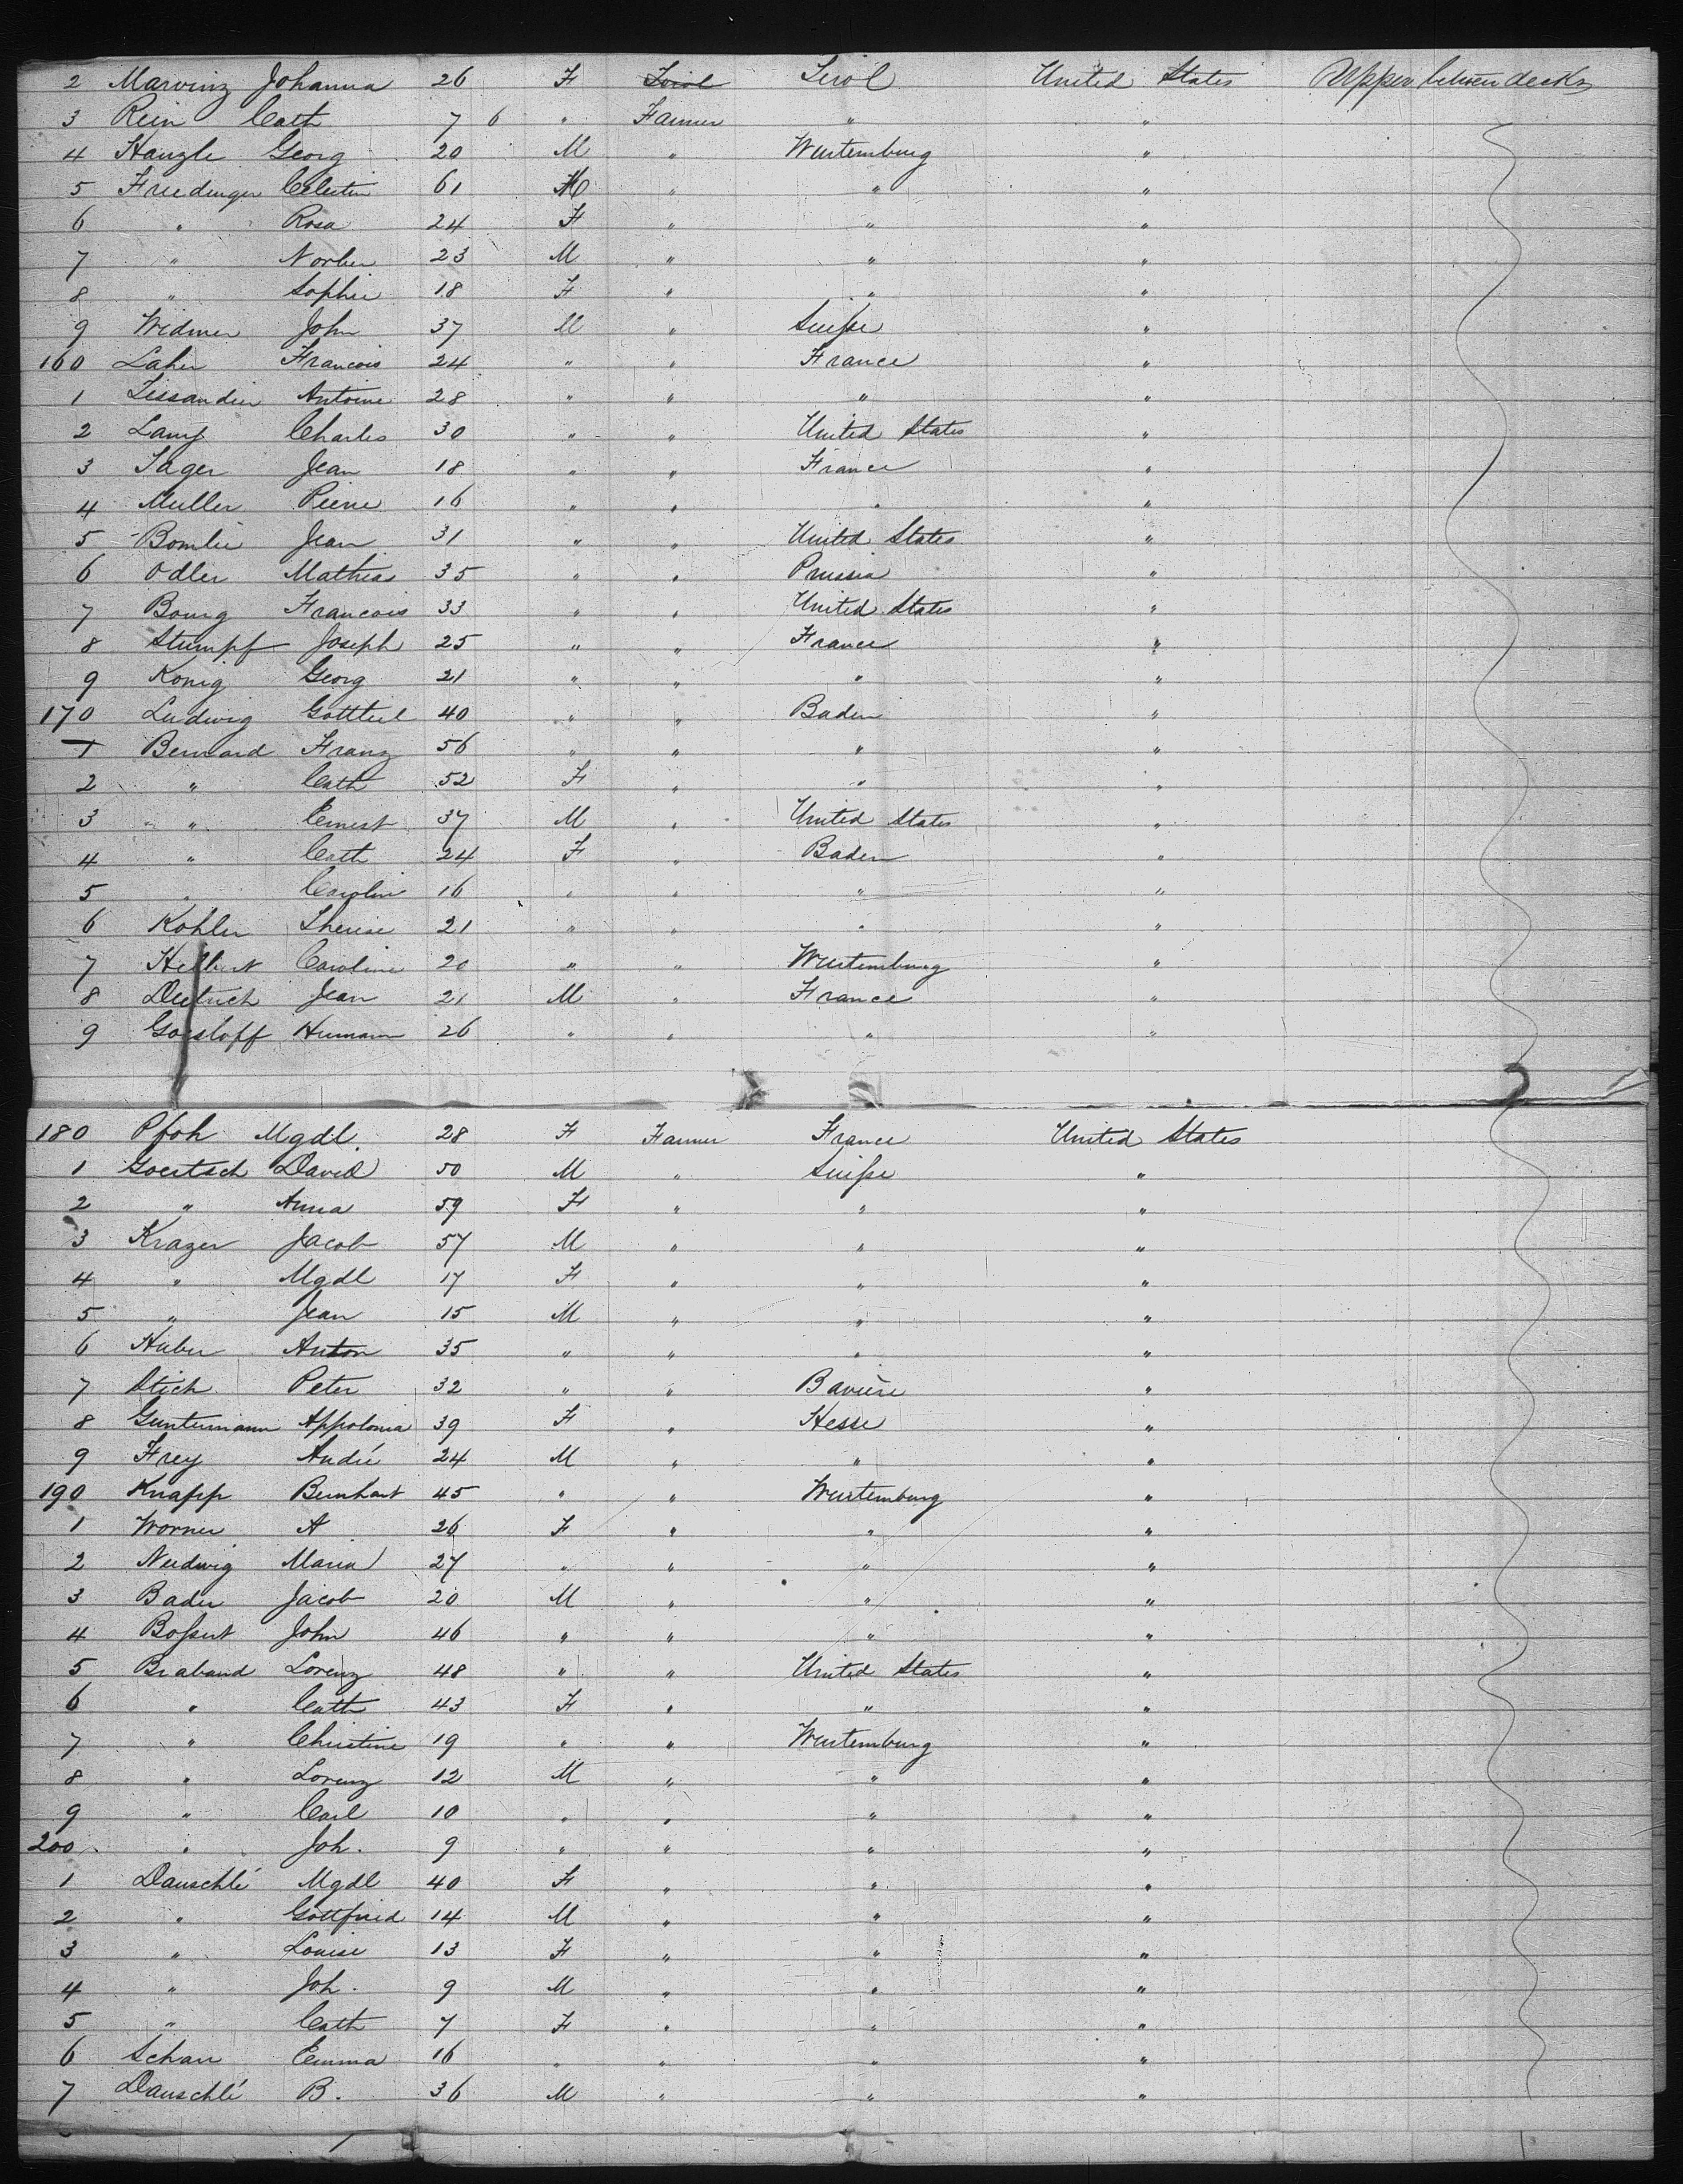 2 Marvinz Johanna 26 F Tirol Tirol United States Upper between decks
3 Rein Cath 7 6 " Farmer " "
4 Hanzle Georg 20 M " Wurtemburg "
5 Friedinger Celestin 61 M " " "
6 " Rosa 24 F " " "
7 " Norber 23 M " " "
8 " Sophie 18 F " " "
9 Widmer John 37 M " Suisse "
160 Laher Francois 24 " " France "
1 Tissandier Antoine 28 " " " "
2 Lamy Charles 30 " " United States "
3 Jager Jean 18 " " France "
4 Muller Pierre 16 " " " "
5 Bomlie Jean 31 " " United States "
6 Odler Mathias 35 " " Prussia "
7 Bourg Francois 33 " " United States "
8 Stumpf Joseph 25 " " France "
9 Konig Georg 21 " " " "
170 Ludwig Gottlieb 40 " " Baden "
1 Bernard Franz 56 " " " "
2 " Cath 52 F " " "
3 " Ernest 37 M " United States "
4 " Cath 24 F " Baden "
5 " Carolin 16 " " " "
6 Kohler Therese 21 " " " "
7 Caroline 20 " " Wurtemburg "
8 Dietrich Jean 21 M " France "
9 Hermann 26 " " " "
180 Pfoh Mgdl. 28 F Farmer France United States
1 Goertsch David 50 M " Suisse "
2 " Anna 59 F " " "
3 Krazer Jacob 57 M " " "
4 " Mgdl 17 F " " "
5 " Jean 15 M " " "
6 Huber Anton 35 " " " "
7 Stich Peter 32 " " Baviere "
8 Guntermann Appolonia 39 F " Hesse "
9 Frey André 24 M " " "
190 Knapp Bernhart 45 " " Wurtemburg "
1 Worner A 26 F " " "
2 Neudwig Maria 27 " " " "
3 Bader Jacob 20 M " " "
4 Bossert John 46 " " " "
5 Braband Lorenz 48 " " United States "
6 " Cath 43 F " " "
7 " Christine 19 " " Wurtemburg "
8 " Lorenz 12 M " " "
9 " Carl 10 " " " "
200 " Joh. 9 " " " "
1 Dauschlé Mgdl 40 F " " "
2 " Gottfried 14 M " " "
3 " Louise 13 F " " "
4 " Joh. 9 M " " "
5 " Cath 7 F " " "
6 Schan Emma 16 " " " "
7 Dauschlé B. 36 M " " "